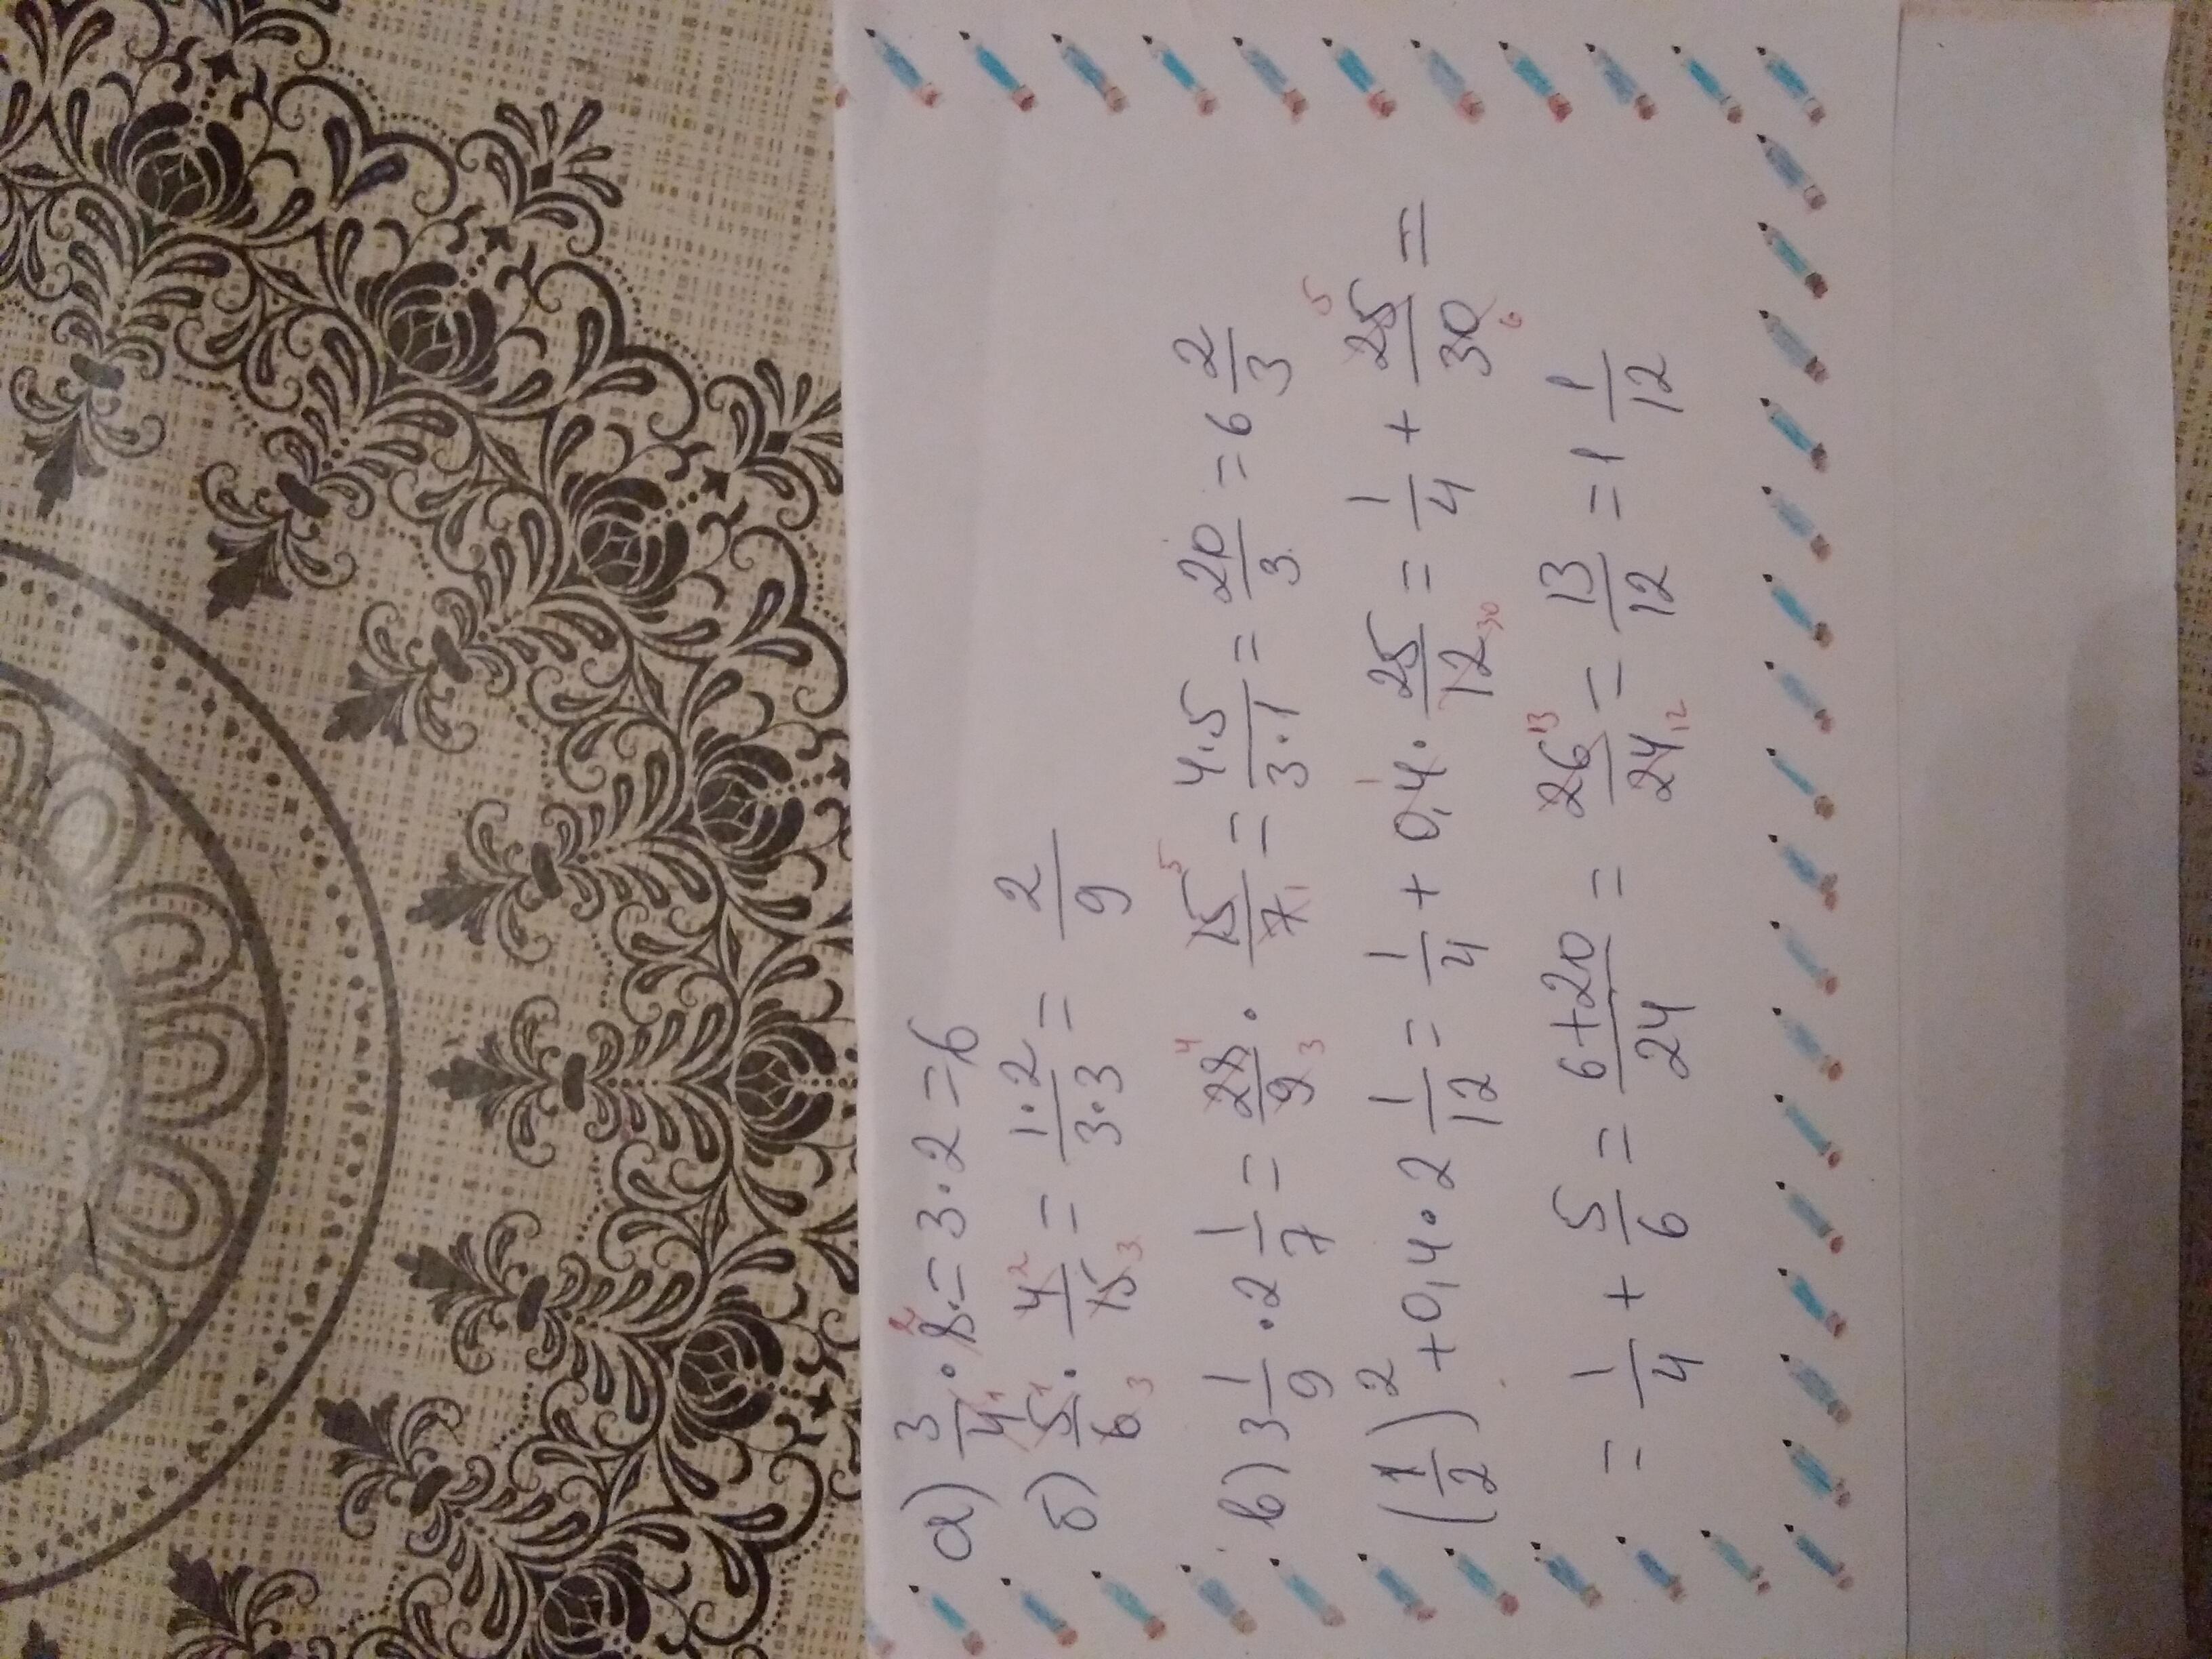 а) 3/4₁ · 8² = 3 · 2 = 6
б) 5¹/6₃ · 4²/15₃ = 1·2/3·3 = 2/9
в) 3 1/9 · 2 1/7 = 28⁴/9₃ · 15⁵/7₁ = 4·5/3·1 = 20/3 = 6 2/3
(1/2)² + 0,4 · 2 1/12 = 1/4 + 0,4¹ · 25/12₃₀ = 1/4 + 25⁵/30₆ =
= 1/4 + 5/6 = 6+20/24 = 26¹³/24₁₂ = 13/12 = 1 1/12